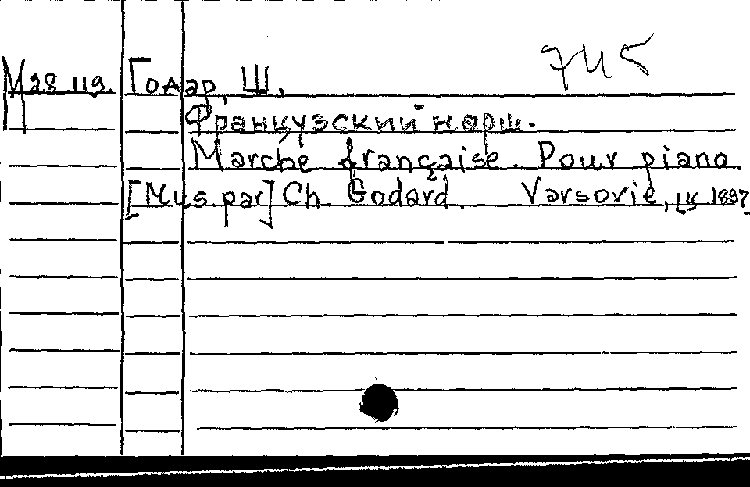 745
М 28 119. Годар, Ш.
Французский марш.
Marche française. Pour piano.
[Mus. par] Ch. Godard. Varsovie, 1897